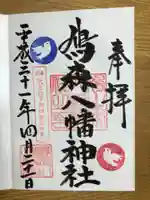 奉拝
鳩森八幡神社
平成三十一年四月二十一日